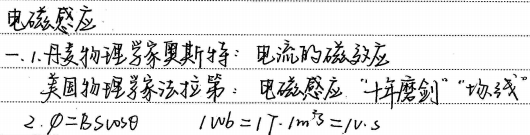 电磁感应
一.1.丹麦物理学家奥斯特：电流的磁效应
美国物理学家法拉第：电磁感应 “十年磨剑” “场、线”
2.φ=BScosθ 1Wb=1T·1m²=1V·s